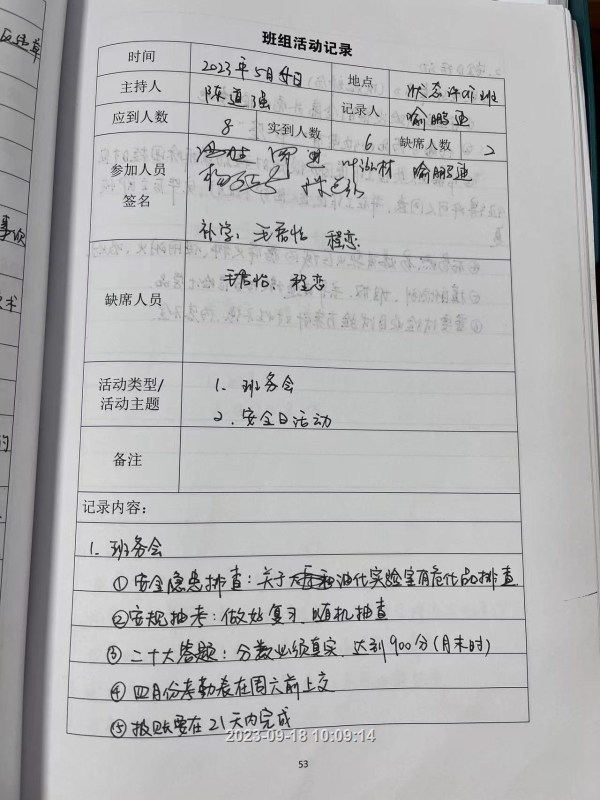 班组活动记录
时间 2023年5月4日 地点 状态评价班
主持人 陈道强 记录人 喻鹏进
应到人数 8 实到人数 6 缺席人数 2
参加人员
签名 喻鹏进
补学: 毛君怡 程恋.
缺席人员 毛君怡、程恋
活动类型/
活动主题
1. 班务会
2. 安全日活动
备注
记录内容:
1. 班务会
①安全隐患排查:关于油化实验室有危化品排查.
②安规抽考:做好复习,随机抽查
③二十大答题:分数必须真实、达到900分(月末时)
④四月份考勤表在周六前上交
⑤报账要在21天内完成
2023-09-18 10:09:14
53